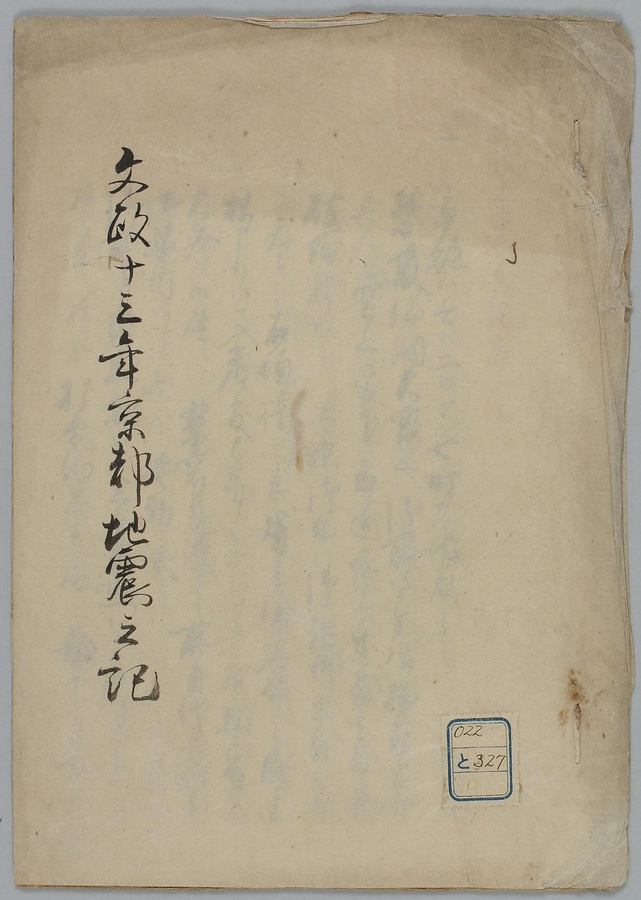 文政十三年京都地震之記
022
と327